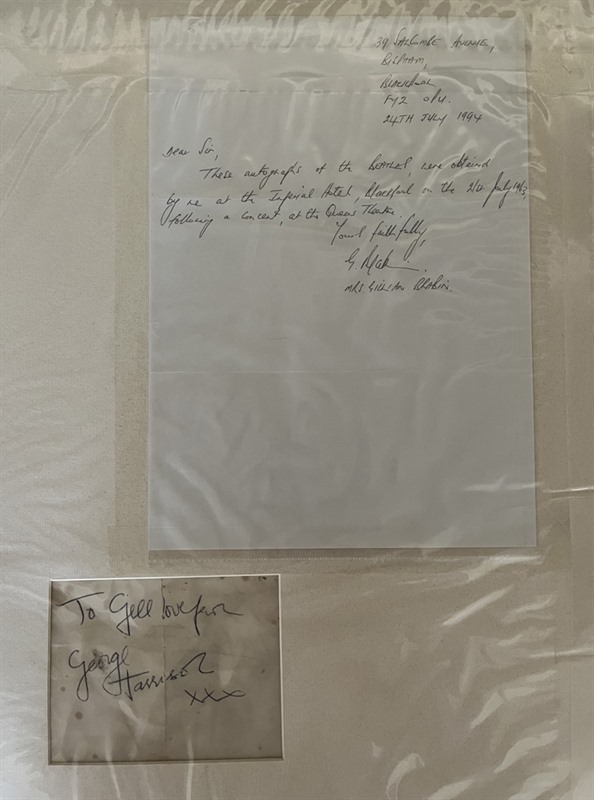 39 SALCOMBE AVENUE,
BISPHAM,
BLACKPOOL
FY2
24TH JULY 1994
Dear Sir,
These autographs of the BEATLES, were obtained
by me at the Imperial Hotel, Blackpool on the July
following a concert, at the Queens Theatre.
Yours faithfully,
G.
MRS GILLIAN
To Gill love from
George
Harrison
xxx